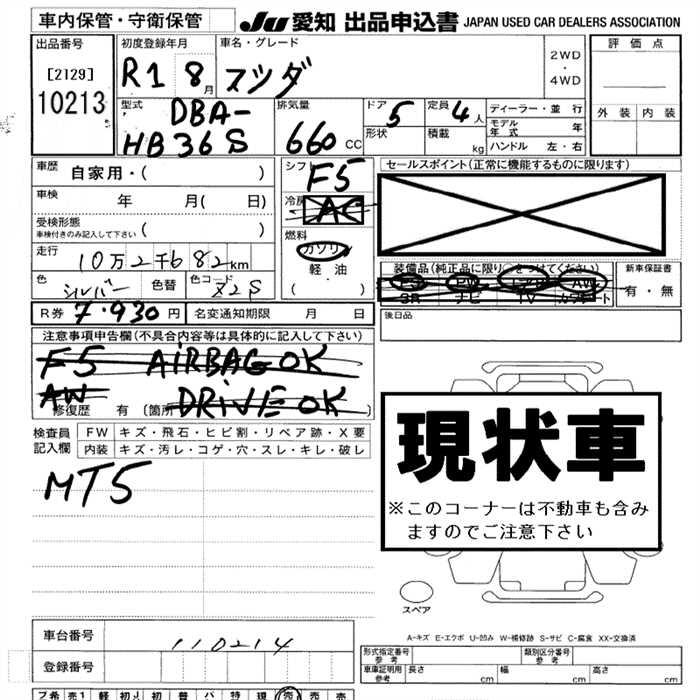 車内保管・守衛保管
JU 愛知 出品申込書 JAPAN USED CAR DEALERS ASSOCIATION
出品番号
[2129]
10213
初度登録年月
R1 8 月
車名・グレード
マツダ
2WD
・
4WD
評 価 点
外 装 内 装
型式
DBA-
HB36S
排気量
660 CC
ドア
5
形状
定員
4 人
積載
kg
ディーラー・並 行
モデル
年 式 年
ハンドル 左・右
車歴
自家用・( )
車検
年 月( 日)
受検形態
車検付きのみ記入して下さい ( )
走行
10万2千682km
色
シルバー
色替
色コード
Z2S
R券 7.930円 名変通知期限 月 日
シフト
F5
冷房
AC
燃料
ガソリン
軽 油
( )
セールスポイント(正常に機能するものに限ります)
装備品(純正品に限り○をつけてください)
PS PW AW
SR ナビ TV カワシート
新車保証書
有・無
後日品
注意事項申告欄(不具合内容等は具体的に記入して下さい)
F5 AIRBAG OK
AW
修復歴 有 [箇所 DRIVE OK ]
検査員
記入欄
FW キズ・飛石・ヒビ割・リペア跡・X要
内装 キズ・汚レ・コゲ・穴・スレ・キレ・破レ
MT5
現状車
※このコーナーは不動車も含み
ますのでご注意下さい
スペア
A-キズ E-エクボ U-凹み W-補修跡 S-サビ C-腐食 XX-交換済
車台番号
110214
登録番号
形式指定番号
参 考
類別区分番号
参 考
車庫証明用
参 考
長さ cm
幅 cm
高さ cm